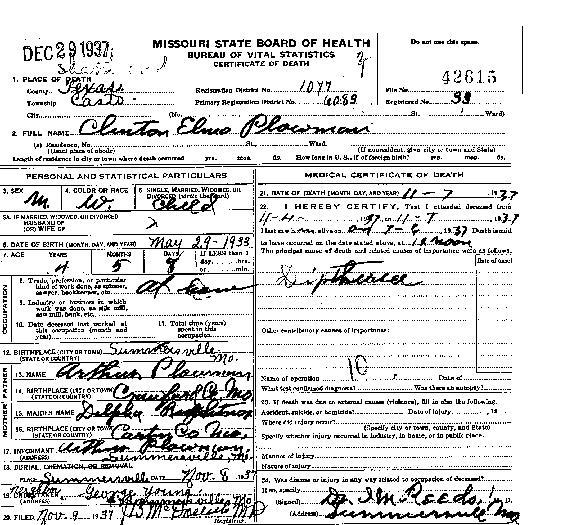 DEC 29 1937
MISSOURI STATE BOARD OF HEALTH
BUREAU OF VITAL STATISTICS
CERTIFICATE OF DEATH
Do not use this space.
42615
1. PLACE OF DEATH
County Texas Registration District No. 1077 File No.
Township Primary Registration District No. 6089 Registered No. 33
City (No. St. Ward)
2. FULL NAME Clinton Elmo Plowman
(a) Residence, No. St. Ward.
(Usual place of abode) (If nonresident, give city or town and State)
Length of residence in city or town where death occurred yrs. mos. ds. How long in U. S., if of foreign birth? yrs. mos. ds.
PERSONAL AND STATISTICAL PARTICULARS
3. SEX M. 4. COLOR OR RACE W. 5. SINGLE, MARRIED, WIDOWED, OR DIVORCED (write the word) Child
5A. IF MARRIED, WIDOWED, OR DIVORCED
HUSBAND OF
(OR) WIFE OF
6. DATE OF BIRTH (MONTH, DAY, AND YEAR) May 29-1933
7. AGE YEARS 4 MONTHS 5 DAYS 8 If LESS than 1 day, hrs. or min.
OCCUPATION
8. Trade, profession, or particular kind of work done, as spinner, sawyer, bookkeeper, etc.
9. Industry or business in which work was done, as silk mill, saw mill, bank, etc.
10. Date deceased last worked at this occupation (month and year)
11. Total time (years) spent in this occupation
12. BIRTHPLACE (CITY OR TOWN) Summersville
(STATE OR COUNTRY) Mo.
FATHER
13. NAME Arthur Plowman
14. BIRTHPLACE (CITY OR TOWN) Crawford Co Mo
(STATE OR COUNTRY)
MOTHER
15. MAIDEN NAME Delpha
16. BIRTHPLACE (CITY OR TOWN) Carter Co Mo.
(STATE OR COUNTRY)
17. INFORMANT Arthur Plowman,
(ADDRESS) Summersville, Mo.
18. BURIAL, CREMATION, OR REMOVAL
PLACE Summersville DATE Nov. 8 1937
19. UNDERTAKER George Young
(ADDRESS) Summersville, Mo
20. FILED Nov. 9 1937
Registrar.
MEDICAL CERTIFICATE OF DEATH
21. DATE OF DEATH (MONTH, DAY, AND YEAR) 11-7 1937
22. I HEREBY CERTIFY, That I attended deceased from
11-4- 1937 to 11-7 1937
I last saw alive on 1937 Death is said
to have occurred on the date stated above, at 12 noon
The principal cause of death and related causes of importance were as follows:
Date of onset
Diptheria
Other contributory causes of importance:
10
Name of operation Date of
What test confirmed diagnosis? Was there an autopsy?
23. If death was due to external causes (violence), fill in also the following:
Accident, suicide, or homicide? Date of injury , 19
Where did injury occur?
(Specify city or town, county, and State)
Specify whether injury occurred in industry, in home, or in public place.
Manner of injury
Nature of injury
24. Was disease or injury in any way related to occupation of deceased?
If so, specify
(Signed) Dr. J M Reeds,
(Address) Summersville Mo